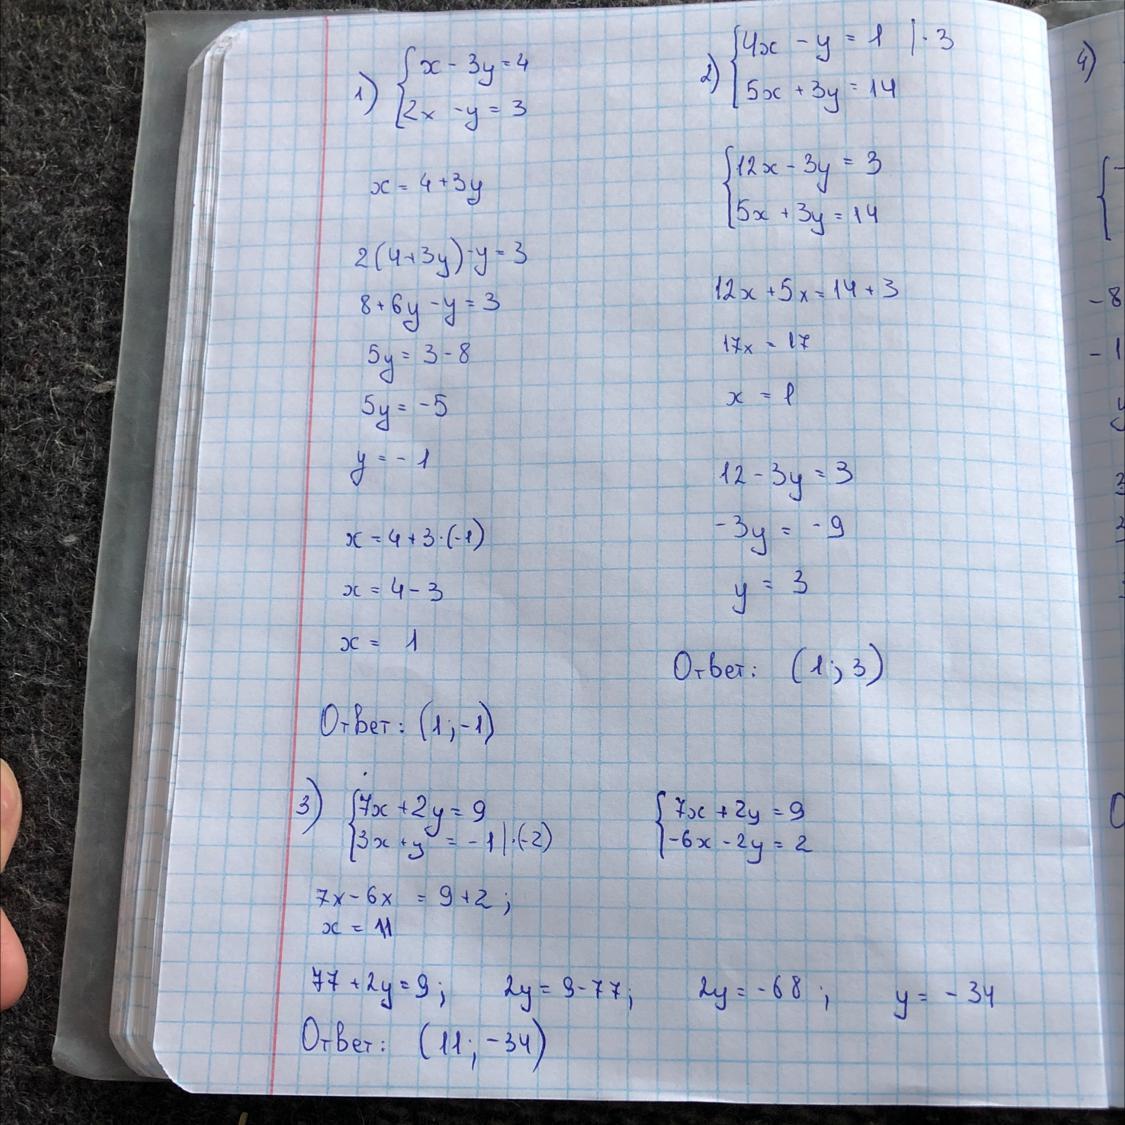 1) { x - 3y = 4
2x - y = 3
x = 4 + 3y
2(4+3y) - y = 3
8 + 6y - y = 3
5y = 3 - 8
5y = -5
y = -1
x = 4 + 3·(-1)
x = 4 - 3
x = 1
Ответ: (1; -1)
2) { 4x - y = 1 |·3
5x + 3y = 14
{ 12x - 3y = 3
5x + 3y = 14
12x + 5x = 14 + 3
17x = 17
x = 1
12 - 3y = 3
-3y = -9
y = 3
Ответ: (1; 3)
3) { 7x + 2y = 9
3x + y = -1 |·(-2)
{ 7x + 2y = 9
-6x - 2y = 2
7x - 6x = 9 + 2;
x = 11
77 + 2y = 9; 2y = 9 - 77; 2y = -68; y = -34
Ответ: (11; -34)
4)
{ -
-8
-1
y
3